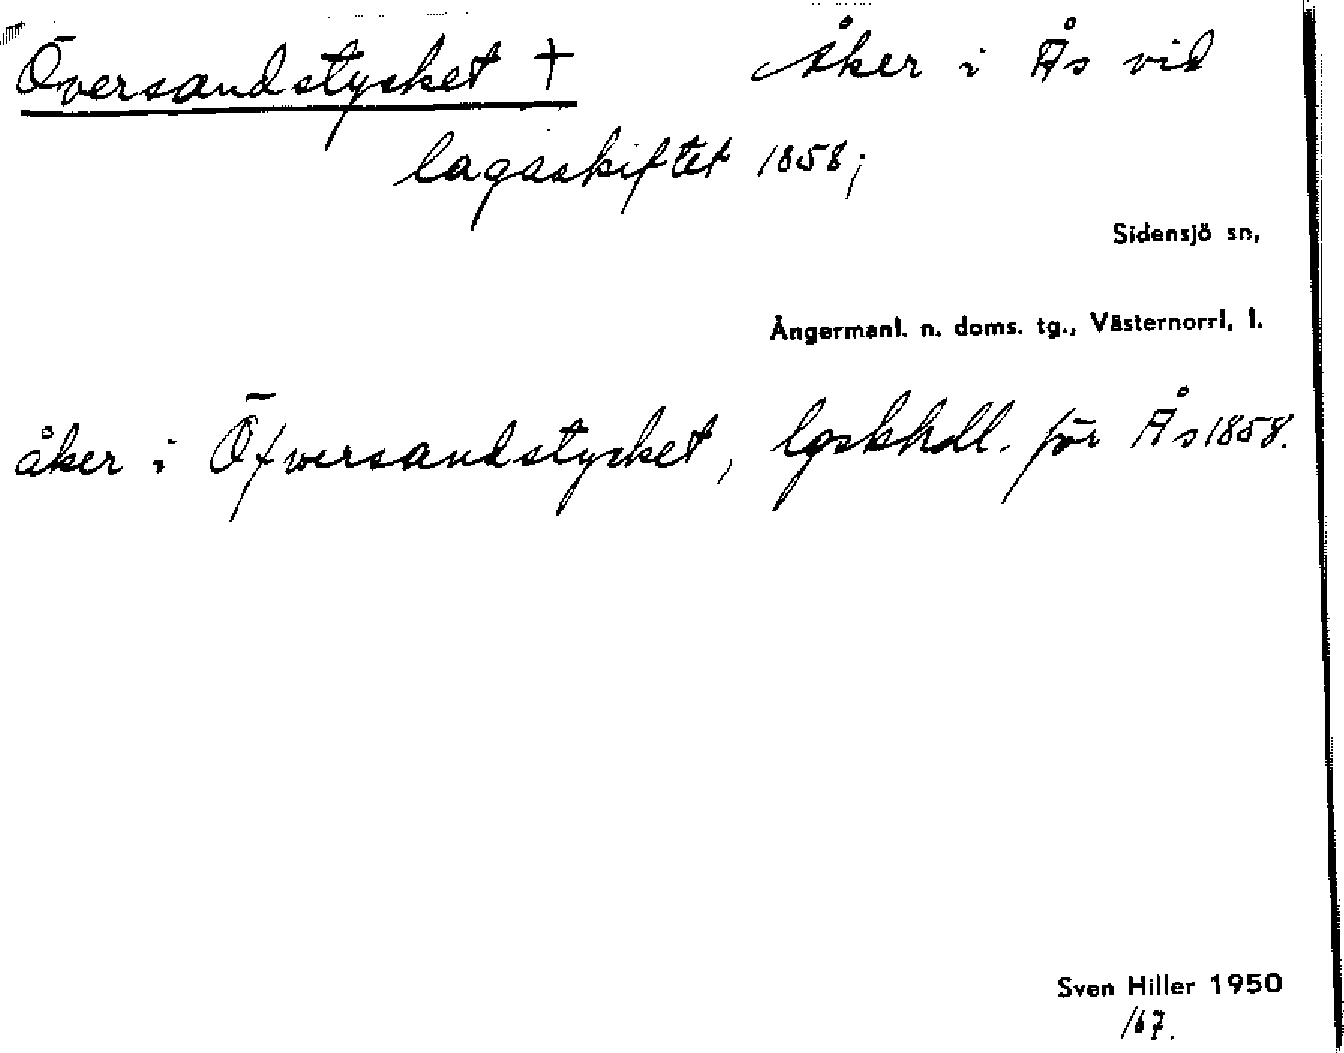 Översandstycket † Åker i Ås vid
lagaskiftet 1858;
Sidensjö sn,
Ångermanl. n. doms. tg., Västernorrl. l.
åker i Öfwersandstycket, lgskhdl. för Ås 1858.
Sven Hiller 1950
167.